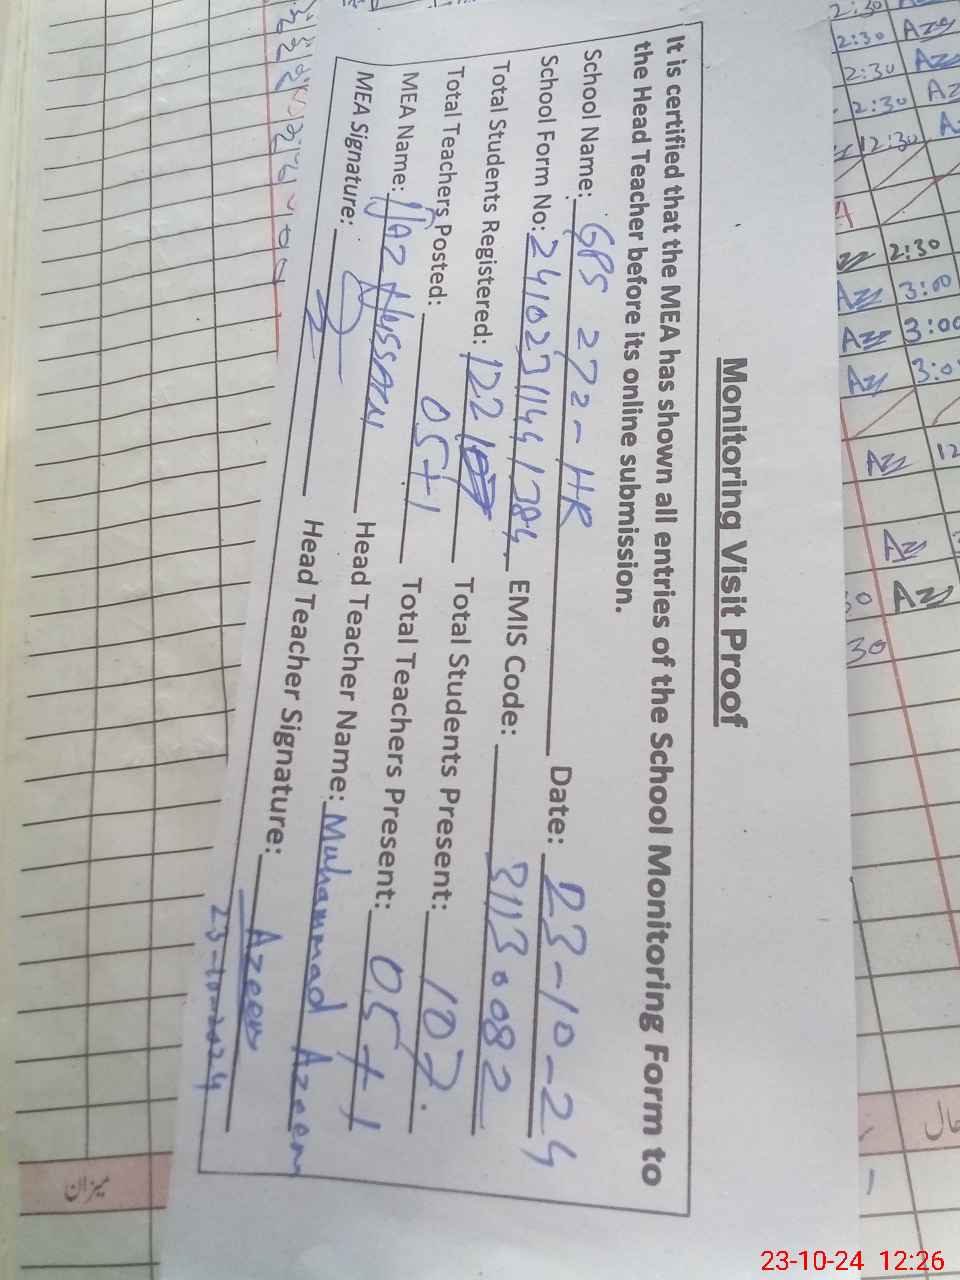 Monitoring Visit Proof
It is certified that the MEA has shown all entries of the School Monitoring Form to
the Head Teacher before its online submission.
School Name: GPS 272-HR Date: 23-10-24
School Form No: 24102311441384 EMIS Code: 31130082
Total Students Registered: 122 Total Students Present: 107
Total Teachers Posted: 05+1 Total Teachers Present: 05+1
MEA Name: Ijaz Hussain Head Teacher Name: Muhammad Azeem
MEA Signature: Head Teacher Signature: Azeem
23-10-2024
2:30
2:30 Azz
2:30 Azz
2:30 Az
12:30 A
A
2:30
Azz 3:00
Azz 3:00
Azz 3:0
Azz 12
Az
30 Azz
30
میزان
23-10-24 12:26